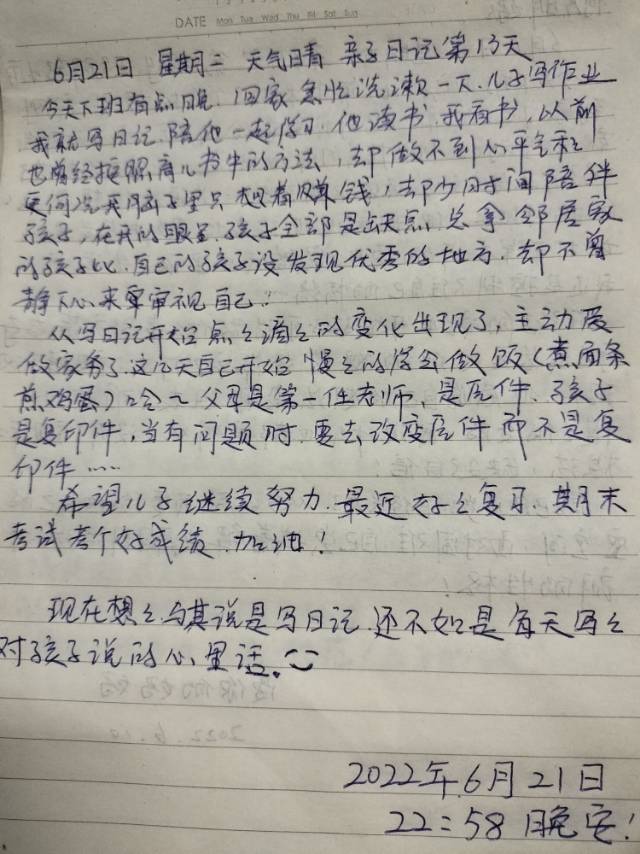 DATE Mon Tue Wed Thu Fri Sat Sun
6月21日 星期二 天气晴 亲子日记第13天
今天下班有点晚.回家急忙洗漱一下.儿子写作业
我就写日记.陪他一起学习.他读书.我看书,以前
也曾经按照育儿书中的方法,却做不到心平气和
更何况我脑子里只想着赚钱,却少时间陪伴
孩子,在我的眼里.孩子全部是缺点.总拿邻居家
的孩子比.自己的孩子没发现优秀的地方.却不曾
静下心来审视自己!
从写日记开始点点滴滴的变化出现了,主动爱
做家务了这几天自己开始慢慢的学会做饭(煮面条
煎鸡蛋)哈~父母是第一任老师、是原件.孩子
是复印件,当有问题时.要去改变原件而不是复
印件……
希望儿子继续努力.最近好好复习.期末
考试考个好成绩.加油!
现在想想与其说是写日记.还不如是每天写写
对孩子说的心里话.
2022年6月21日
22:58 晚安!